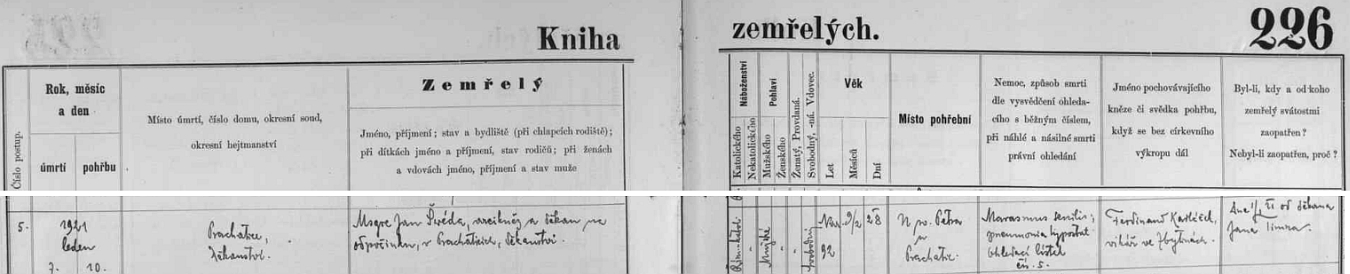 Kniha
zemřelých.
226
Číslo postup.
Rok, měsíc
a den
úmrtí
pohřbu
Místo úmrtí, číslo domu, okresní soud,
okresní hejtmanství
Zemřelý
Jméno, příjmení; stav a bydliště (při chlapcích rodiště);
při dítkách jméno a příjmení, stav rodičů; při ženách
a vdovách jméno, příjmení a stav muže
Náboženství
Katolického
Nekatolického
Pohlaví
Mužského
Ženského
Ženatý, Provdaná.
Svobodný, -ná. Vdovec.
Věk
Let
Měsíců
Dní
Místo pohřební
Nemoc, způsob smrti
dle vysvědčení ohleda-
cího s běžným číslem,
při náhlé a násilné smrti
právní ohledání
Jméno pochovávajícího
kněze či svědka pohřbu,
když se bez církevního
výkropu dál
Byl-li, kdy a od koho
zemřelý svátostmi
zaopatřen?
Nebyl-li zaopatřen, proč?
5.
1921
leden
7. 10.
Prachatice,
děkanství.
Msgre Jan Švéda, děkan na
odpočinku, v Prachaticích, děkanství.
mužské
svobodný
92
28
U sv. Petra
v
Prachatic.
Marasmus senilis;
pneumonia hypostat.
ohledací lístek
čís. 5.
Ferdinand
vikář ve
od děkana
Jana